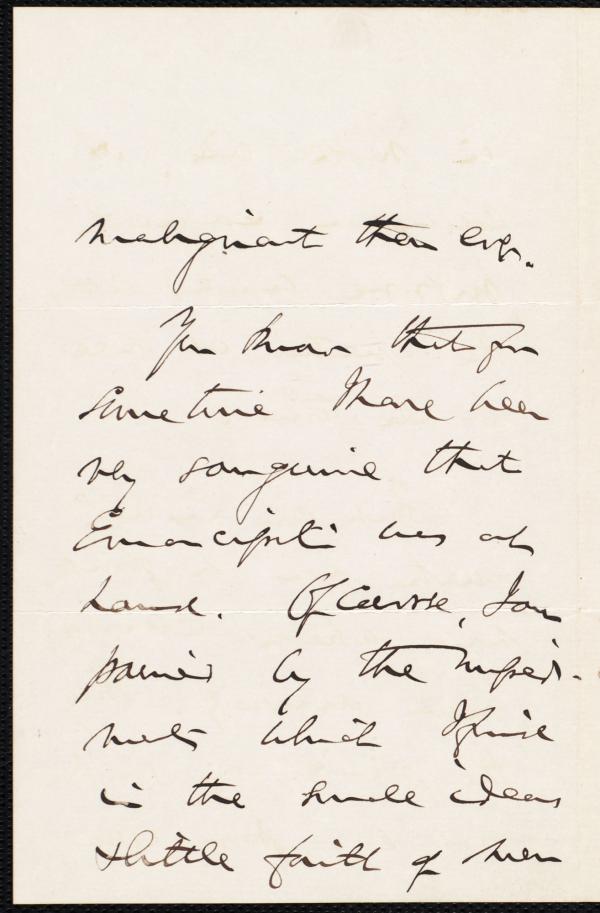 malignant than ever.
You know that for
sometime I have been
very sanguine that
Emancipati was at
hand. Of course, I am
pained by the impedi-
ments which I find
in the small ideas
& little faith of men